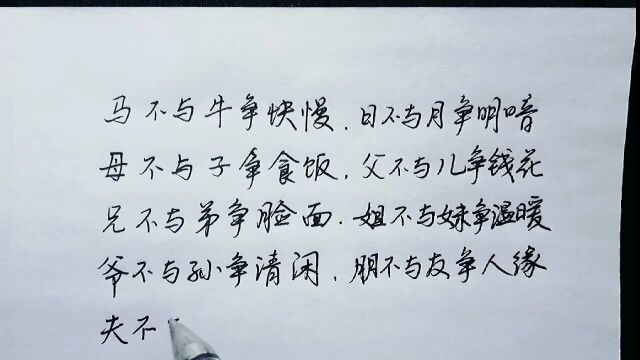 马不与牛争快慢.日不与月争明暗
母不与子争食饭.父不与儿争钱花
兄不与弟争脸面.姐不与妹争温暖
爷不与孙争清闲.朋不与友争人缘
夫不